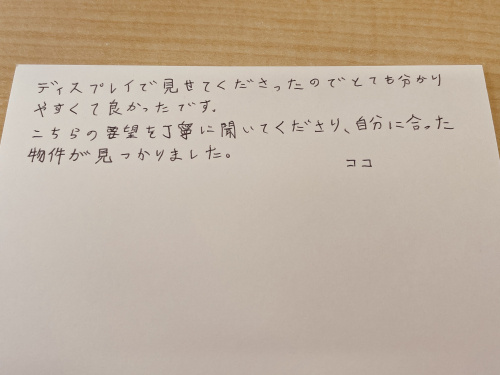 ディスプレイで見せてくださったのでとても分かり
やすくて良かったです。
こちらの要望を丁寧に聞いてくださり、自分に合った
物件が見つかりました。
ココ